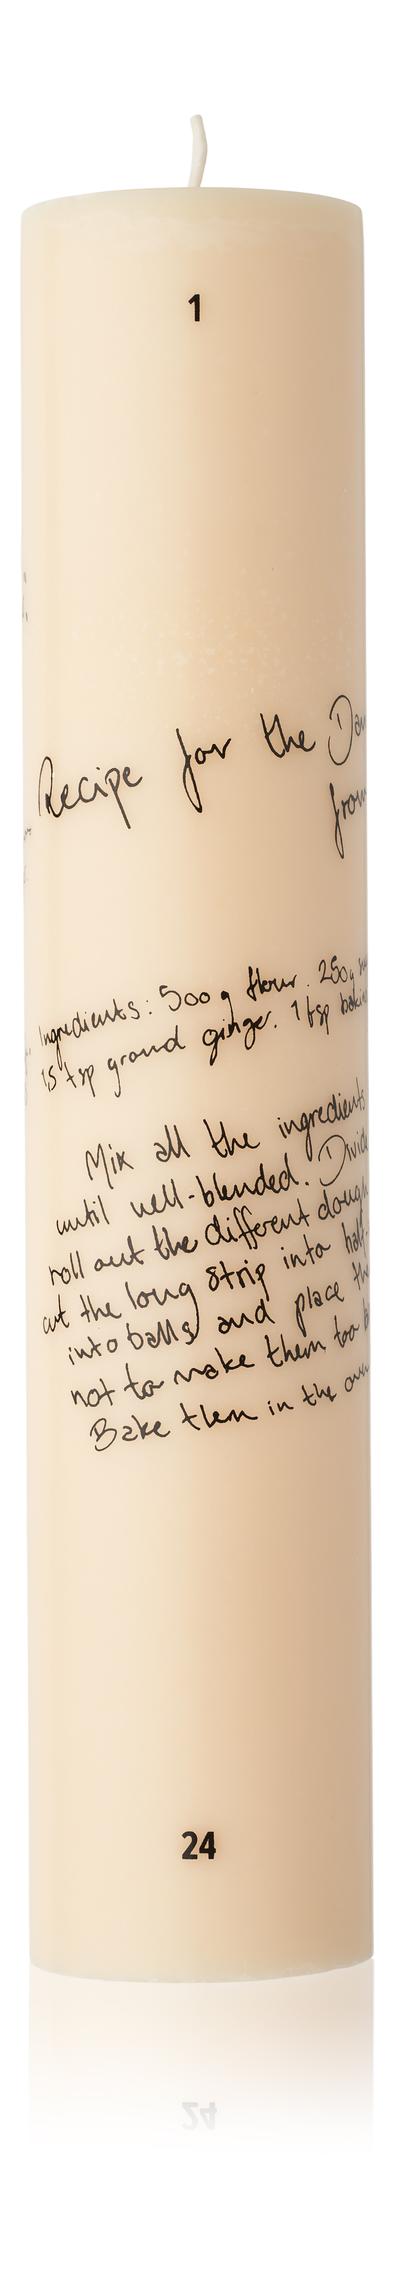 1
Recipe for the
Ingredients: 500 g flour. 250g
1,5 tsp ground ginger. 1 tsp
Mix all the ingredients
until well-blended.
roll out the different dough
cut the long strip into
into balls and place
not to make them too
Bake them in the
24